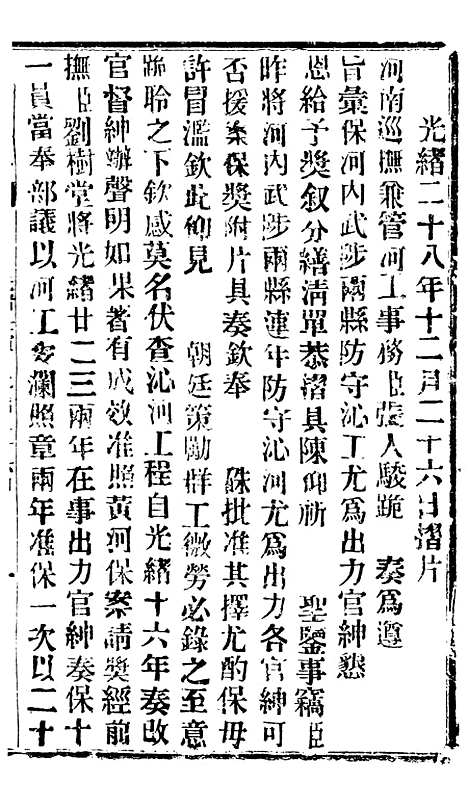 光緒二十八年十二月二十六日摺片
河南巡撫兼管河工事務臣張人駿跪 奏爲遵
旨彙保河內武涉兩縣防守沁工尤爲出力官紳懇
恩給予獎叙分繕清單恭摺具陳仰祈 聖鑒事竊臣
昨將河內武涉兩縣連年防守沁河尤爲出力各官紳可
否援案保獎附片具奏欽奉 硃批准其擇尤酌保毋
許冒濫欽此仰見 朝廷策勵群工微勞必錄之至意
跪聆之下欽感莫名伏查沁河工程自光緒十六年奏改
官督紳辦聲明如果著有成效准照黃河保案請獎經前
撫臣劉樹堂將光緒廿二三兩年在事出力官紳奏保十
一員當奉部議以河工安瀾照章兩年准保一次以二十